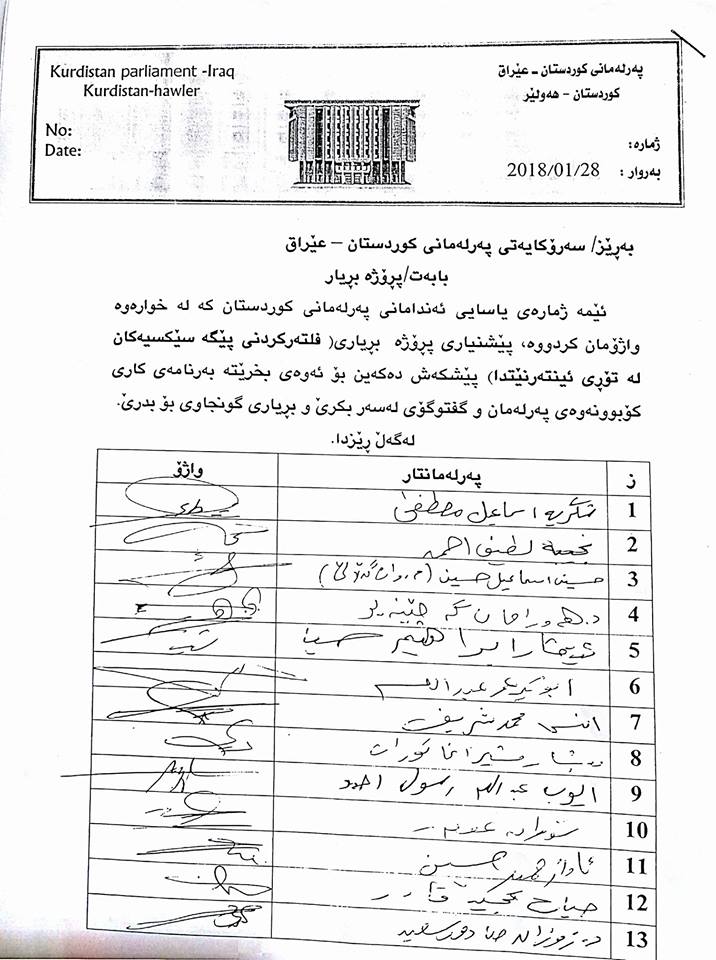 Kurdistan parliament -Iraq
Kurdistan-hawler
No:
Date:
پەرلەمانی کوردستان - عێراق
کوردستان - هەولێر
ژمارە:
بەروار : 2018/01/28
بەڕێز/ سەرۆکایەتی پەرلەمانی کوردستان – عێراق
بابەت/پڕۆژە بڕیار
ئێمە ژمارەی یاسایی ئەندامانی پەرلەمانی کوردستان کە لە خوارەوە
واژۆمان کردووە، پێشنیاری پڕۆژە بڕیاری( فلتەرکردنی پێگە سێکسیەکان
لە تۆڕی ئینتەرنێتدا) پێشکەش دەکەین بۆ ئەوەی بخرێتە بەرنامەی کاری
کۆبوونەوەی پەرلەمان و گفتوگۆی لەسەر بکرێ و بڕیاری گونجاوی بۆ بدرێ.
لەگەڵ ڕێزدا.
ز پەرلەمانتار واژۆ
1 شكرية اسماعيل مصطفى
2 نجيبة لطيف احمد
3 حسين اسماعيل حسين
4
5
6 ابوبكر عمر عبدالله
7 انس محمد شريف
8
9 ايوب عبدالله رسول احمد
10
11 ئاواز حسين
12 صباح
13